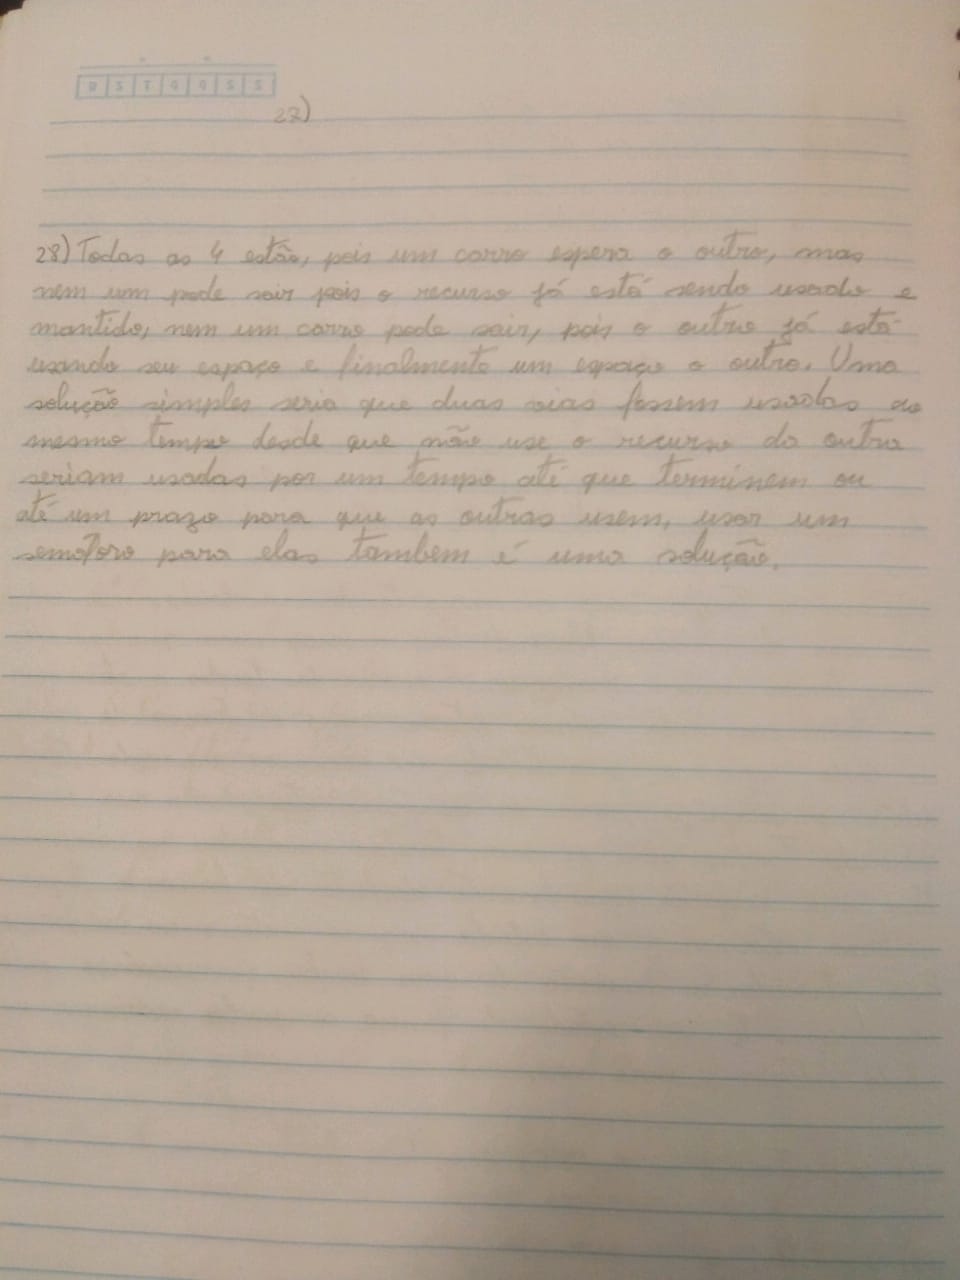 D S T Q Q S S
27)
28) Todas as 4 estão, pois um carro espera o outro, mas
nem um pode sair pois o recurso já está sendo usado e
mantido, nem um carro pode sair, pois o outro já está
usando seu espaço e finalmente um espaço o outro. Uma
solução simples seria que duas vias fossem usadas ao
mesmo tempo desde que não use o recurso da outra
seriam usadas por um tempo até que terminem ou
até um prazo para que as outras usem, usar um
semáforo para elas tambem é uma solução.